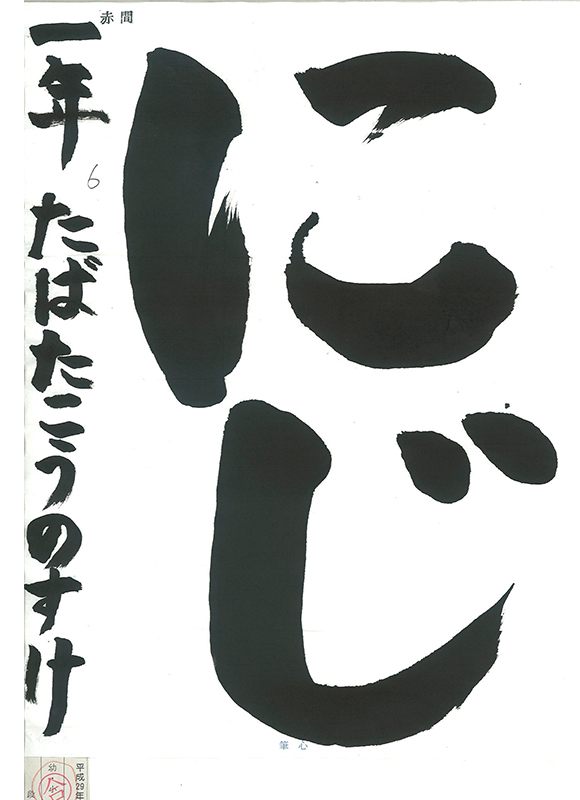 赤間
にじ
一年 たばたこうのすけ
6
心筆
平成29年
幼
段